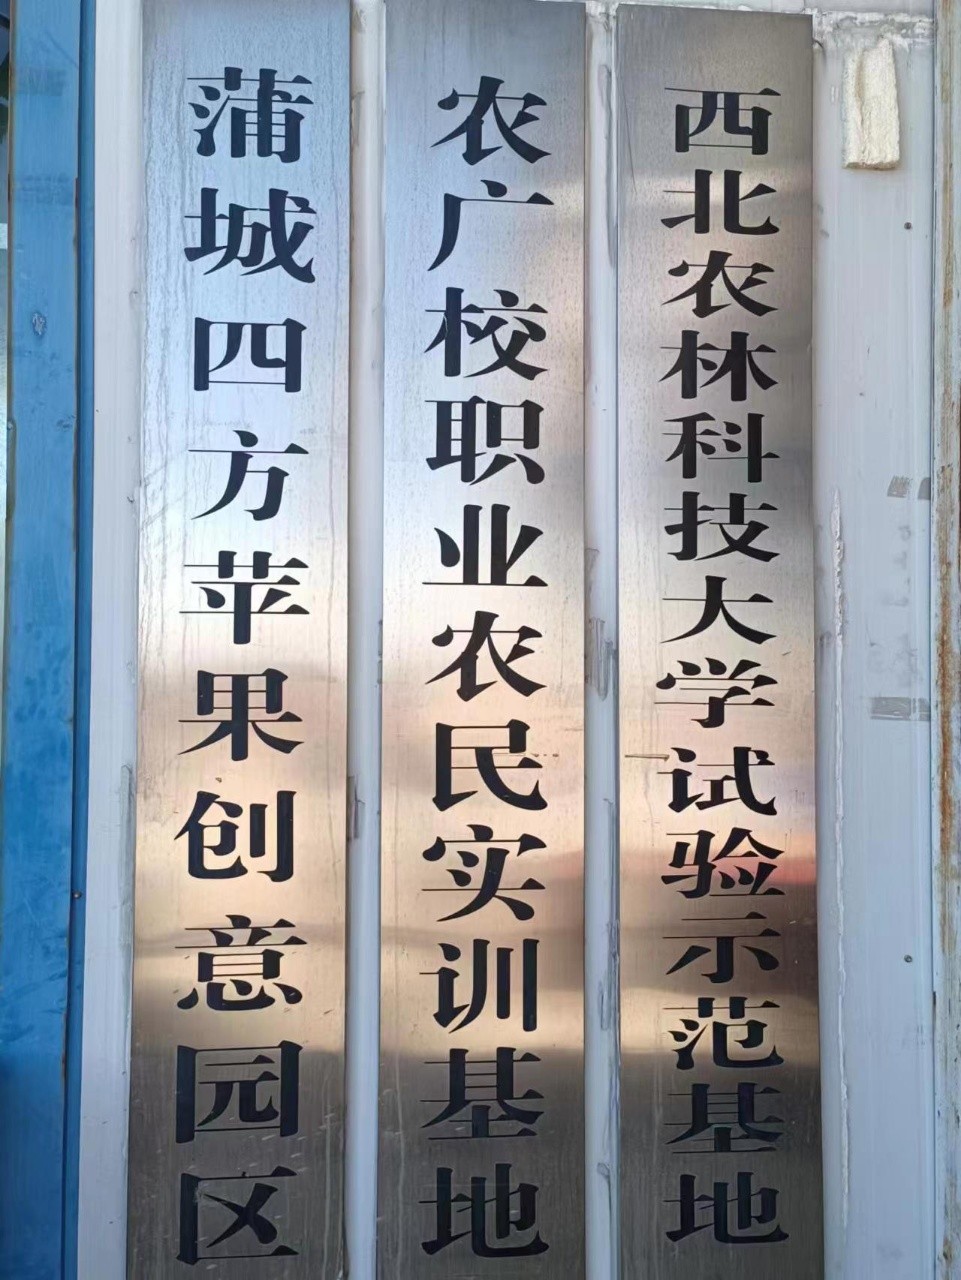 蒲城四方苹果创意园区
农广校职业农民实训基地
西北农林科技大学试验示范基地